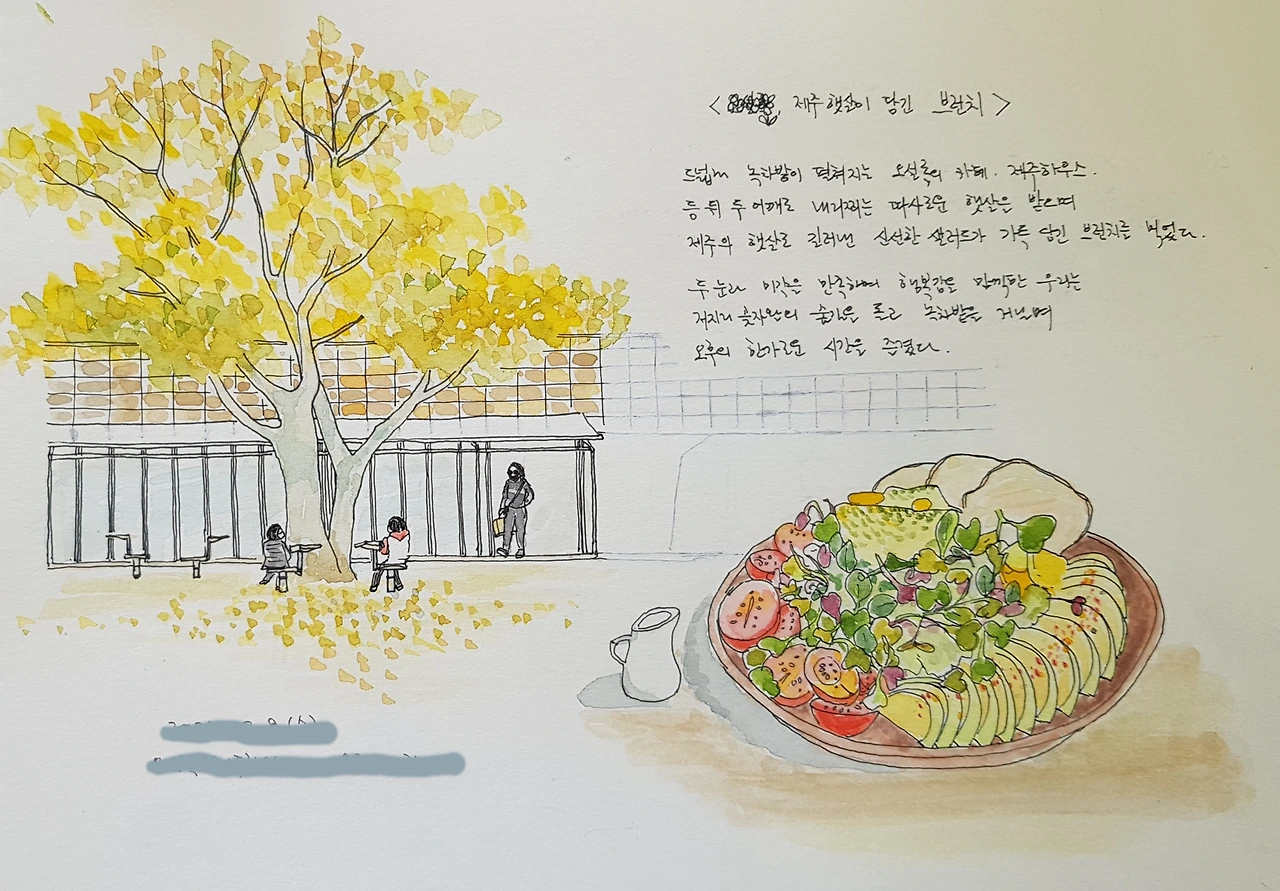 < 제주 햇살이 담긴 브런치 >
드넓은 녹차밭이 펼쳐지는 오설록의 카페. 제주하우스.
등 뒤 두 어깨로 내리쬐는 따사로운 햇살을 받으며
제주의 햇살로 길러낸 신선한 샐러드가 가득 담긴 브런치를 먹었다.
두 눈과 미각을 만족하며 행복감을 만끽한 우리는
저지리 곶자왈의 숲길을 돌고 녹차밭을 거닐며
오후의 한가로운 시간을 즐겼다.